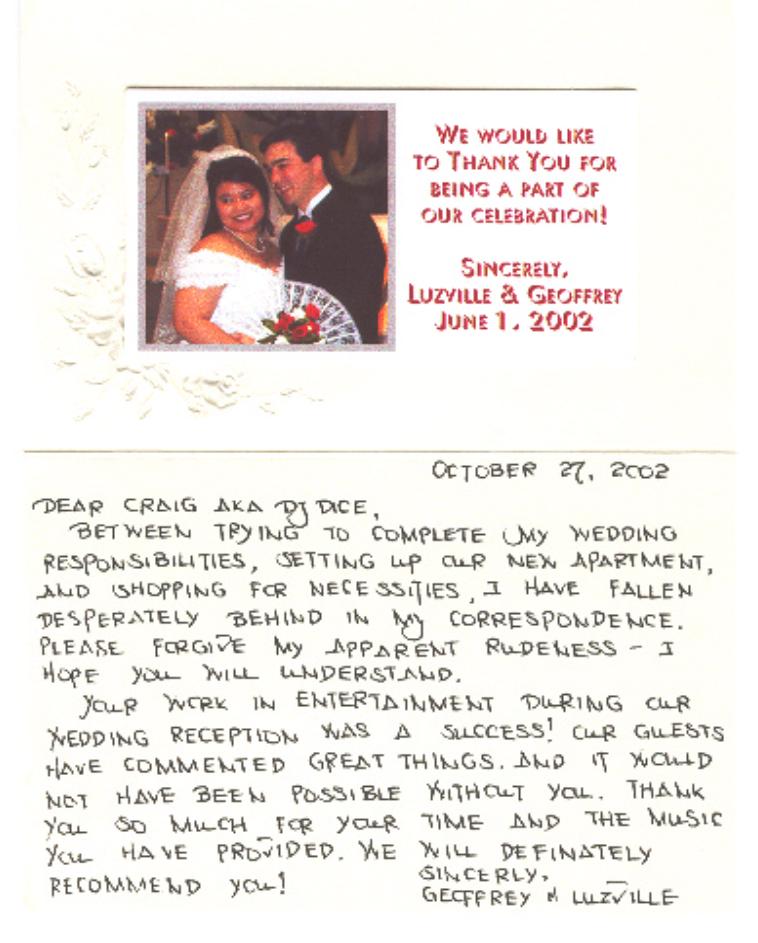 WE WOULD LIKE
TO THANK YOU FOR
BEING A PART OF
OUR CELEBRATION!
SINCERELY,
LUZVILLE & GEOFFREY
JUNE 1, 2002
OCTOBER 27, 2002
DEAR CRAIG AKA DJ DICE,
BETWEEN TRYING TO COMPLETE MY WEDDING
RESPONSIBILITIES, SETTING UP OUR NEW APARTMENT,
AND SHOPPING FOR NECESSITIES, I HAVE FALLEN
DESPERATELY BEHIND IN MY CORRESPONDENCE.
PLEASE FORGIVE MY APPARENT RUDENESS - I
HOPE YOU WILL UNDERSTAND.
YOUR WORK IN ENTERTAINMENT DURING OUR
WEDDING RECEPTION WAS A SUCCESS! OUR GUESTS
HAVE COMMENTED GREAT THINGS. AND IT WOULD
NOT HAVE BEEN POSSIBLE WITHOUT YOU. THANK
YOU SO MUCH FOR YOUR TIME AND THE MUSIC
YOU HAVE PROVIDED. WE WILL DEFINATELY
RECOMMEND YOU!
SINCERLY,
GEOFFREY & LUZVILLE